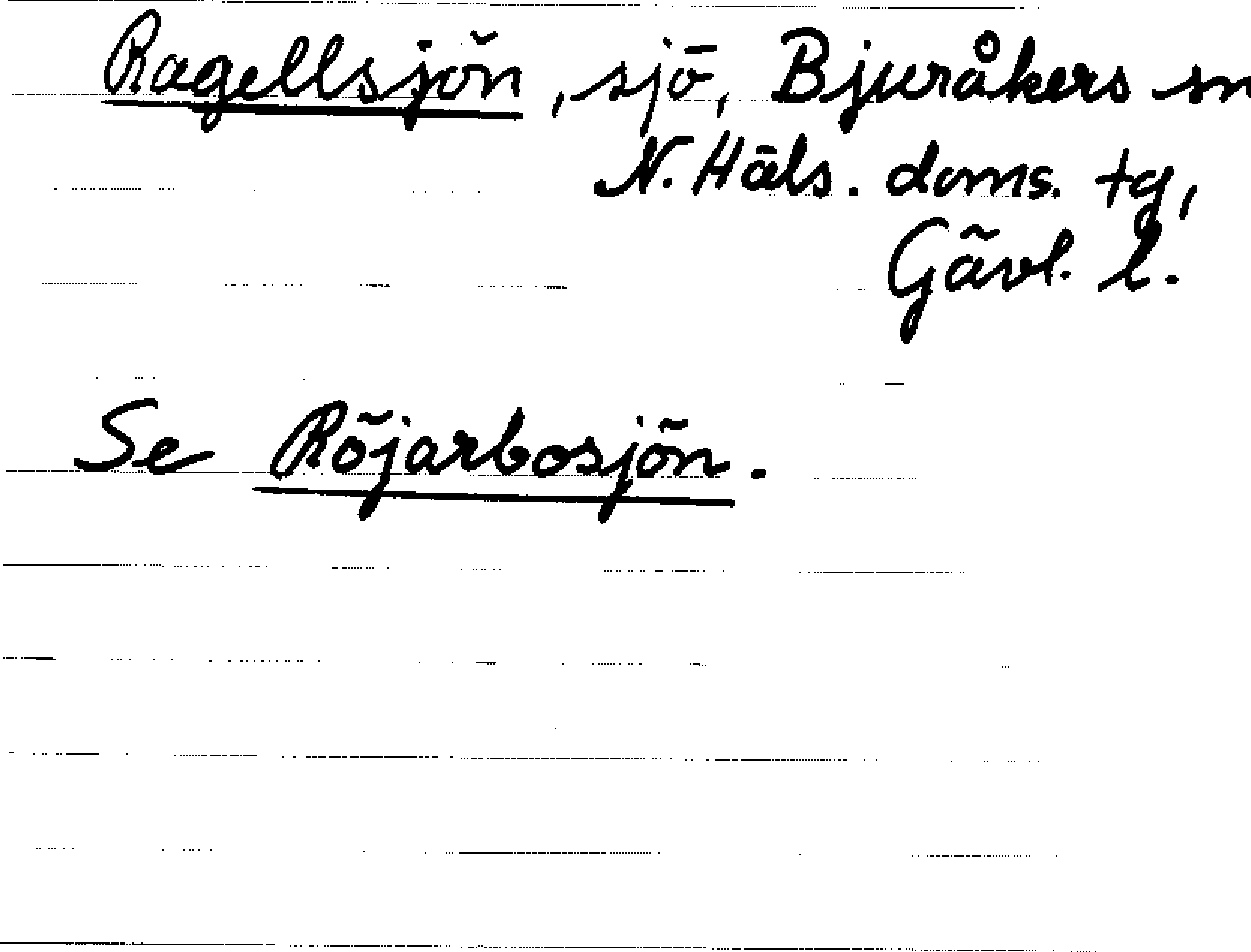 Ragellsjön, sjö, Bjuråkers sn
N. Häls. doms. tg,
Gävl. l.
Se Röjarbosjön.